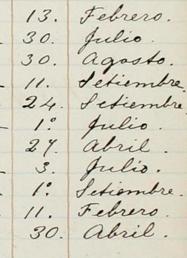 13. Febrero.
30. Julio.
30. Agosto.
11. Setiembre.
24. Setiembre.
1.º Julio.
27. Abril.
3. Julio.
1.º Setiembre.
11. Febrero.
30. Abril.